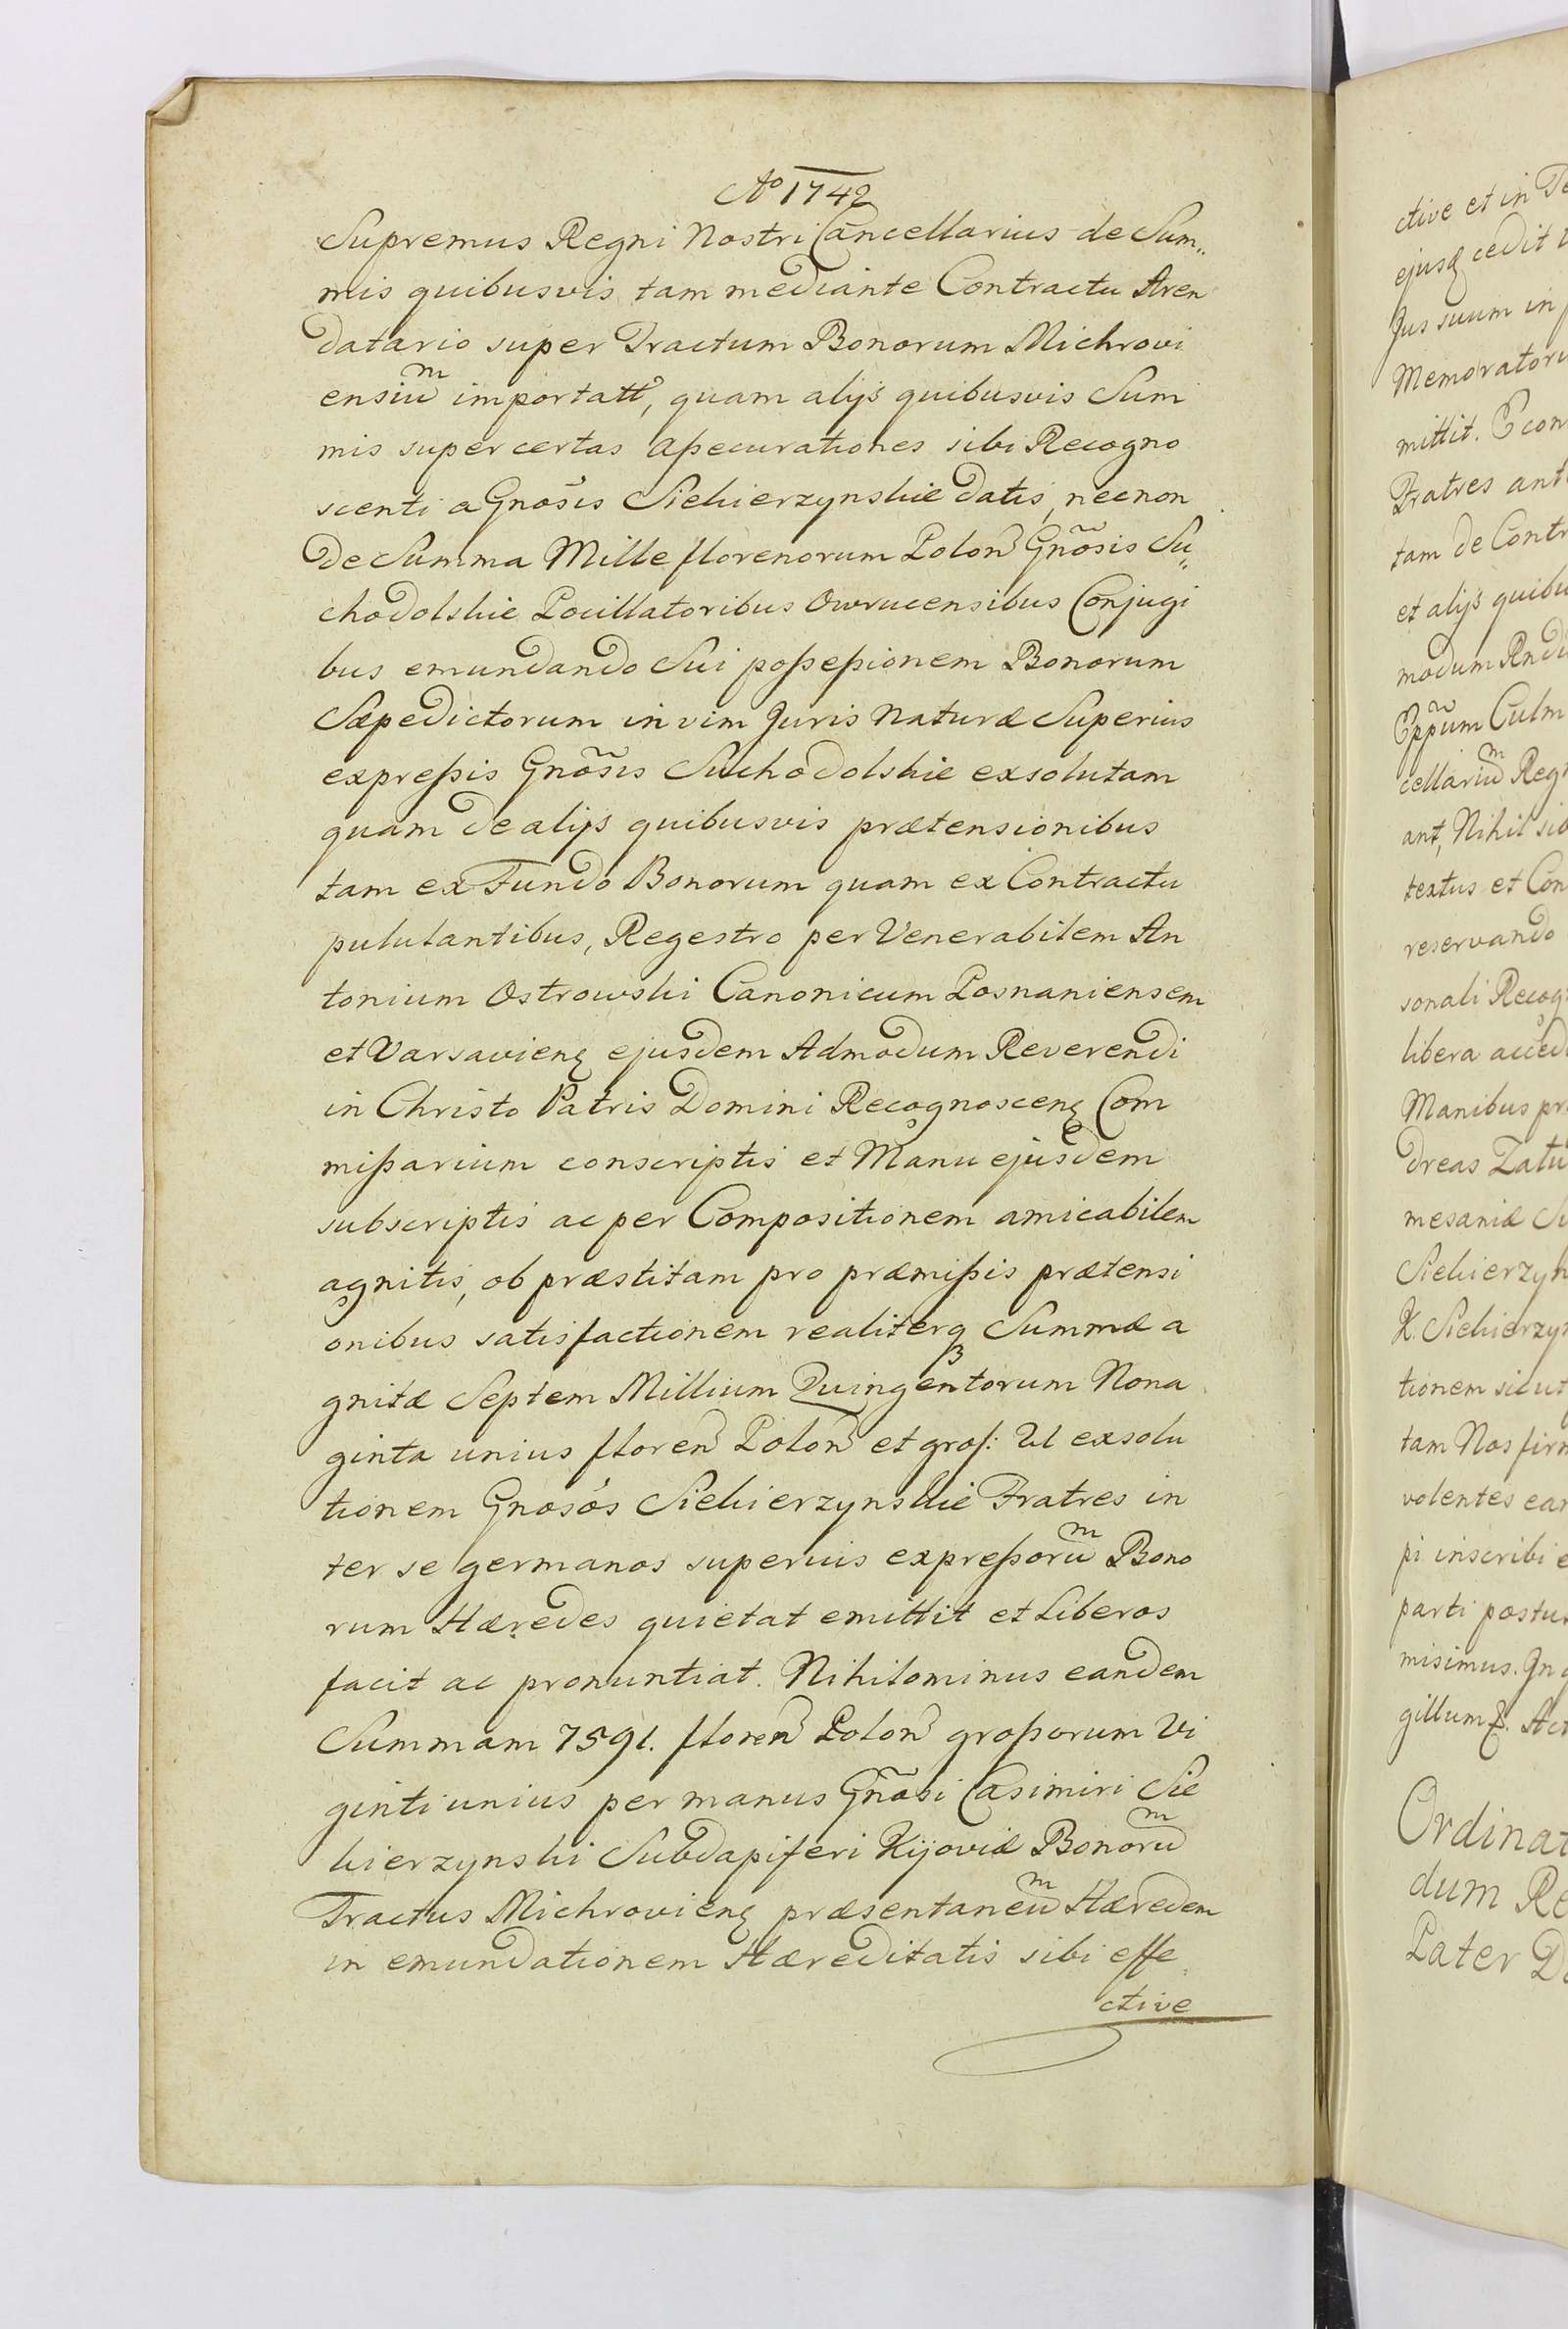 Aº 1742
Supremus Regni Nostri Cancellarius de Sum„
mis quibusvis tam mediante Contractu Aren
datario super Tractum Bonorum Michrovi
ensiuᵐ importatt, quam alijs quibusvis Sum
mis super certas aßecurationes sibi Recogno
scenti a Gnosis Siekierzynskie datis, necnon
de Summa Mille florenorum Polon Gnõsis Su„
chodolskie Pocillatoribus Owrucensibus Conjugi
bus emundando Sui poßeßionem Bonorum
Sæpedictorum in vim Juris Naturæ Superius
expreßis Gnõsis Suchodolskie exsolutam
quam de alijs quibusvis prætensionibus
tam ex Fundo Bonorum quam ex Contractu
pululantibus, Regestro per Venerabilem An
tonium Ostrowski Canonicum Posnaniensem
et Varsavienȩ ejusdem Admodum Reverendi
in Christo Patris Domini Recognoscenȩ Com
mißarium conscriptis et Manu ejusdem
subscriptis ac per Compositionem amicabilem
agnitis, ob præstitam pro præmißis prætensi
onibus satisfactionem realiterq Summæ a
gnitæ Septem Millium Quingentorum Nona
ginta unius floren Polon et groß: 21 exsolu
tionem Gnosos Siekierzynskie Fratres in
ter se germanos superius expreßoruᵐ Bono
rum Hæredes quietat emittit et Liberos
facit ac pronuntiat. Nihilominus eandem
Summam 7591. floren Polon großorum Vi
ginti unius per manus Gnõsi Casimiri Sie
kierzynski Subdapiferi Kijoviæ Bonoruᵐ
Tractus Michrovienȩ præsentaneuᵐ Hæredem
in emundationem Hæreditatis sibi effe„
ctive
ctive et in
ejusq cedit
Jus suum in
Memorator
mittit. Econ
Fratres ant
tam de Contr
et alijs quibu
modum Rndi
Eppũm Culm
cellariuᵐ Reg
ant, Nihil sib
textus et Con
reservando
sonali Recog
libera acced
Manibus pr
dreas Zału
mesaniæ
Siekierzyn
K. Siekierzyn
tionem sicut
tam Nos firm
volentes ea
pi inscribi e
parti postu
misimus. In
gillum Act
Ordinat
dum Re
Pater D